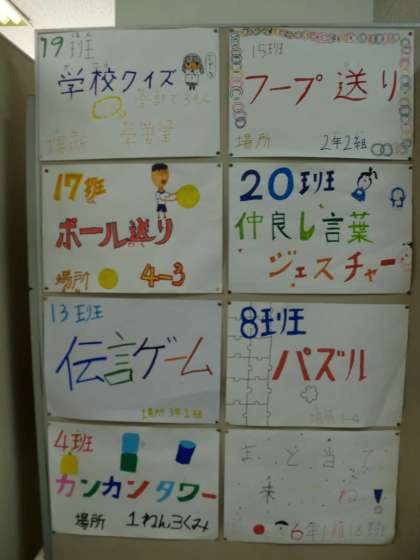 19班
学校クイズ
場所
学習室
15班
フープ送り
場所 2年2組
17班
ボール送り
場所 4-3
20班
仲良し言葉
ジェスチャー
13班
伝言ゲーム
場所 3年1組
8班
パズル
場所 1-4
4班
カンカンタワー
場所 1ねん3くみ
まと当て
来てね!
6年1組18班